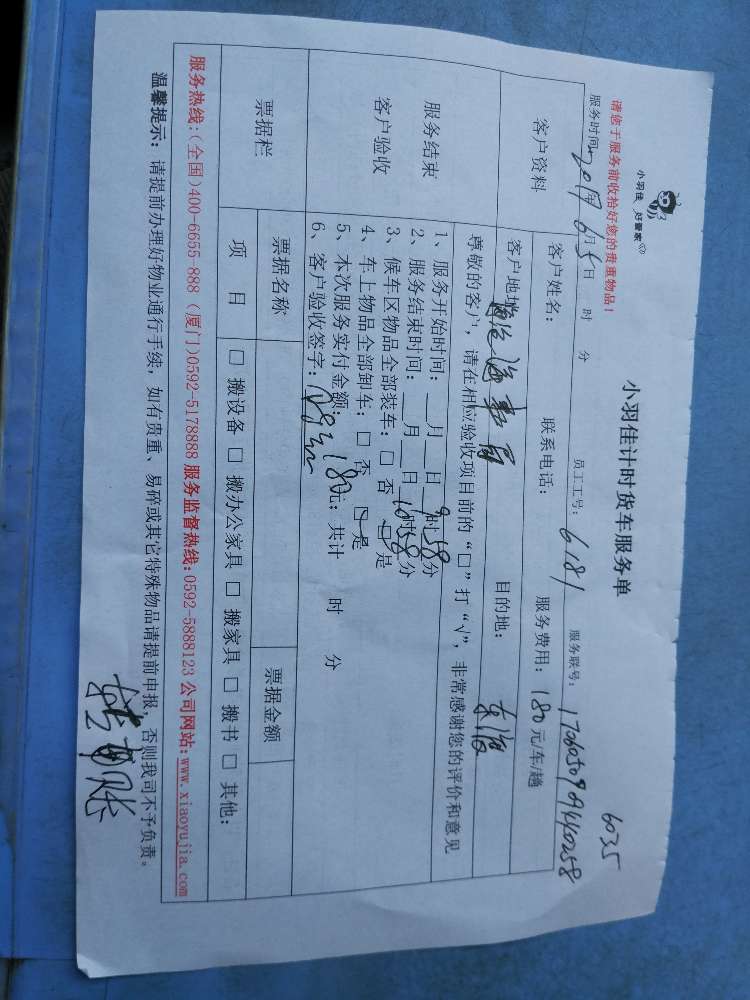 请您于服务前收拾好您的贵重物品！
小羽佳 好管家
小羽佳计时货车服务单
6035
服务时间 2017年6月5日 时 分 员工工号：6181 服务联号：
客户资料
客户姓名： 联系电话： 服务费用：180元/车/趟
客户地址：海沧海事局 目的地：东渡
服务结束
客户验收
尊敬的客户，请在相应验收项目前的“□”打“√”，非常感谢您的评价和意见
1、服务开始时间：__月__日9时58分
2、服务结束时间：__月__日10时58分
3、候车区物品全部装车：□ 否 □ 是
4、车上物品全部卸车：□ 否 □ 是
5、本次服务实付金额：180元；共计 时 分
6、客户验收签字：
票据栏
票据名称 票据金额
项 目 □ 搬设备 □ 搬办公家具 □ 搬家具 □ 搬书 □ 其他：
服务热线：(全国)400-6655-888 (厦门)0592-5178888 服务监督热线：0592-5888123 公司网站：www.xiaoyujia.com
温馨提示：请提前办理好物业通行手续，如有贵重、易碎或其它特殊物品请提前申报，否则我司不予负责。